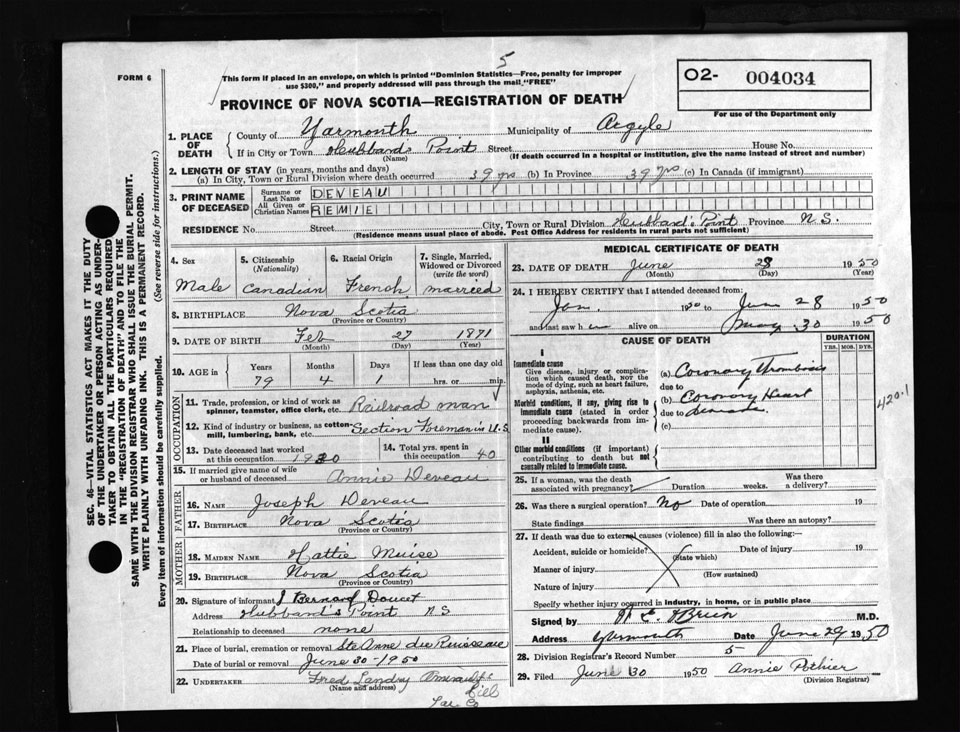 5
FORM 6
This form if placed in an envelope, on which is printed "Dominion Statistics—Free, penalty for improper
use $300," and properly addressed will pass through the mail "FREE"
O2- 004034
For use of the Department only
PROVINCE OF NOVA SCOTIA—REGISTRATION OF DEATH
SEC. 46—VITAL STATISTICS ACT MAKES IT THE DUTY
OF THE UNDERTAKER OR PERSON ACTING AS UNDER-
TAKER TO OBTAIN ALL THE PARTICULARS REQUIRED
IN THE "REGISTRATION OF DEATH" AND TO FILE THE
SAME WITH THE DIVISION REGISTRAR WHO SHALL ISSUE THE BURIAL PERMIT.
WRITE PLAINLY WITH UNFADING INK. THIS IS A PERMANENT RECORD.
Every item of information should be carefully supplied. (See reverse side for instructions.)
1. PLACE OF DEATH
County of Yarmouth Municipality of Argyle
If in City or Town Hubbards Point Street House No.
(Name) (If death occurred in a hospital or institution, give the name instead of street and number)
2. LENGTH OF STAY (in years, months and days)
(a) In City, Town or Rural Division where death occurred 39 yrs (b) In Province 39 yrs (c) In Canada (if immigrant)
3. PRINT NAME OF DECEASED
Surname or Last Name DEVEAU
All Given or Christian Names REMIE
RESIDENCE No. Street City, Town or Rural Division Hubbard's Point Province N.S.
(Residence means usual place of abode. Post Office Address for residents in rural parts not sufficient)
4. Sex Male
5. Citizenship (Nationality) Canadian
6. Racial Origin French
7. Single, Married, Widowed or Divorced (write the word) married
8. BIRTHPLACE Nova Scotia
(Province or Country)
9. DATE OF BIRTH Feb 27 1871
(Month) (Day) (Year)
10. AGE in Years Months Days If less than one day old
79 4 1 hrs. or min.
OCCUPATION
11. Trade, profession or kind of work as spinner, teamster, office clerk, etc. Railroad man
12. Kind of industry or business, as cotton-mill, lumbering, bank, etc. Section Foreman in U.S
13. Date deceased last worked at this occupation 1930
14. Total yrs. spent in this occupation 40
15. If married give name of wife or husband of deceased Annie Deveau
FATHER
16. Name Joseph Deveau
17. Birthplace Nova Scotia
(Province or Country)
MOTHER
18. Maiden Name Hattie Muise
19. Birthplace Nova Scotia
(Province or Country)
20. Signature of informant J Bernard Doucet
Address Hubbard's Point N.S
Relationship to deceased none
21. Place of burial, cremation or removal Ste Anne du Ruisseau
Date of burial or removal June 30-1950
22. UNDERTAKER Fred Landry
(Name and address)
Yar. Co
MEDICAL CERTIFICATE OF DEATH
23. DATE OF DEATH June 28 1950
(Month) (Day) (Year)
24. I HEREBY CERTIFY that I attended deceased from:
Jan. 1950 to June 28 1950
and last saw him alive on May 30 1950
CAUSE OF DEATH DURATION
YRS. MOS. DYS.
I
Immediate cause
Give disease, injury or complication which caused death, not the mode of dying, such as heart failure, asphyxia, asthenia, etc.
(a) Coronary Thrombosis
due to
Morbid conditions, if any, giving rise to immediate cause (stated in order proceeding backwards from immediate cause.)
(b) Coronary Heart
due to disease.
(c)
420.1
II
Other morbid conditions (if important) contributing to death but not causally related to immediate cause.
25. If a woman, was the death associated with pregnancy? Duration weeks. Was there a delivery?
26. Was there a surgical operation? No Date of operation 19
State findings Was there an autopsy?
27. If death was due to external causes (violence) fill in also the following:—
Accident, suicide or homicide? Date of injury 19
(State which)
Manner of injury
(How sustained)
Nature of injury
Specify whether injury occurred in industry, in home, or in public place
Signed by E. O'Brien M.D.
Address Yarmouth Date June 29 1950
28. Division Registrar's Record Number 5-
29. Filed June 30 1950 Annie Pothier
(Division Registrar)